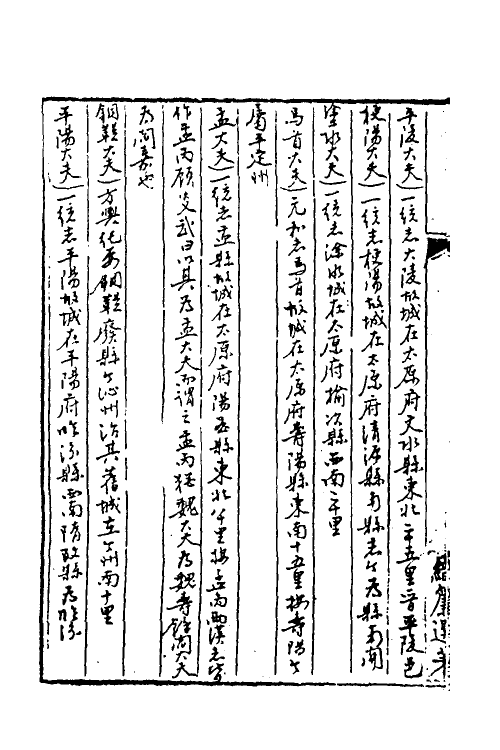 平陵大夫一統志大陵故城在太原府文水縣東北二十五里晉平陵邑
梗陽大夫一統志梗陽故城在太原府清源縣南縣志今為縣南關
塗水大夫一統志涂水城在太原府榆次縣西南二十里
馬首大夫元和志馬首故城在太原府壽陽縣東南十五里按壽陽今
屬平定州
盂大夫一統志盂縣故城在太原府陽曲縣東北八十里按盂丙兩漢志皆
作孟丙顧炎武曰以其為盂大夫而謂之盂丙猶魏大夫為魏壽餘邯大夫
為閻嘉也
銅鞮大夫方輿紀要銅鞮廢縣今沁州治其舊城在今州南十里
平陽大夫一統志平陽故城在平陽府臨汾縣西南隋改縣為臨汾